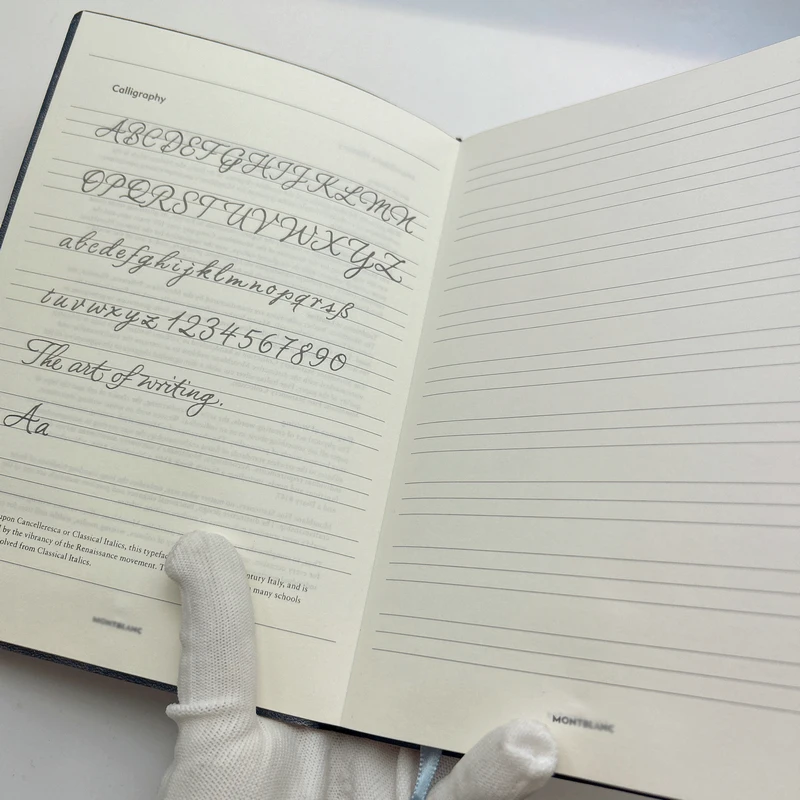 Calligraphy
ABCDEFGHIJKLMN
OPQRSTUVWXYZ
abcdefghijklmnopqrsß
tuvwxyz 1234567890
The art of writing.
Aa
upon Cancelleresca or Classical Italics, this typeface
ntury Italy, and is
by the vibrancy of the Renaissance movement. T
many schools
olved from Classical Italics.
MONTBLANC
MONTBLANC